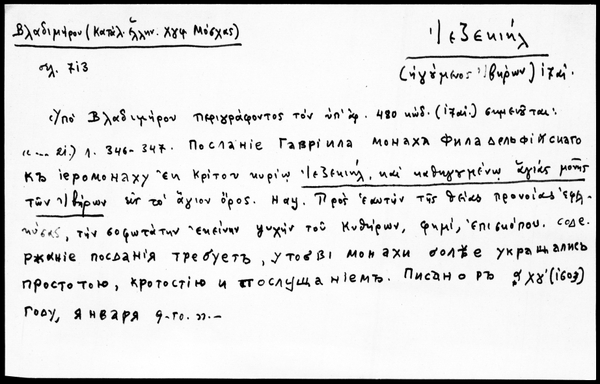 Βλαδιμήρου (Κατάλ. ἑλλην. Χγφ Μόσχας)
Ἰεζεκιήλ
σελ. 713
(ἡγούμενος Ἰβήρων) ιζ αἰ.
Ὑπὸ Βλαδιμήρου περιγράφοντος τὸν ὑπ' ἀρ. 480 κώδ. (ιζ αἰ.) σημειοῦται:
"... 21.) л. 346-347. Посланіе Гавріила монаха филадельфійскаго
къ іеромонаху ἐκ Κρίτου κυρίῳ Ἰεζεκιήλ, καὶ καθηγουμένῳ ἁγίας μονῆς
τῶν Ἰβήρων εἰς τὸ ἅγιον ὄρος. Нач. Πρὸς ἑαυτὴν τῆς θείας προνοίας ἐφελ-
κύσας, τὴν σοφωτάτην ἐκείνην ψυχὴν τοῦ Κυθήρων, φημί, ἐπισκόπου. Соде-
ржаніе посланія требуетъ, чтобы монахи болѣе украшались
простотою, кротостію и послушаніемъ. Писано въ ͵αχγ' (1603)
году, января 9-го. ".-